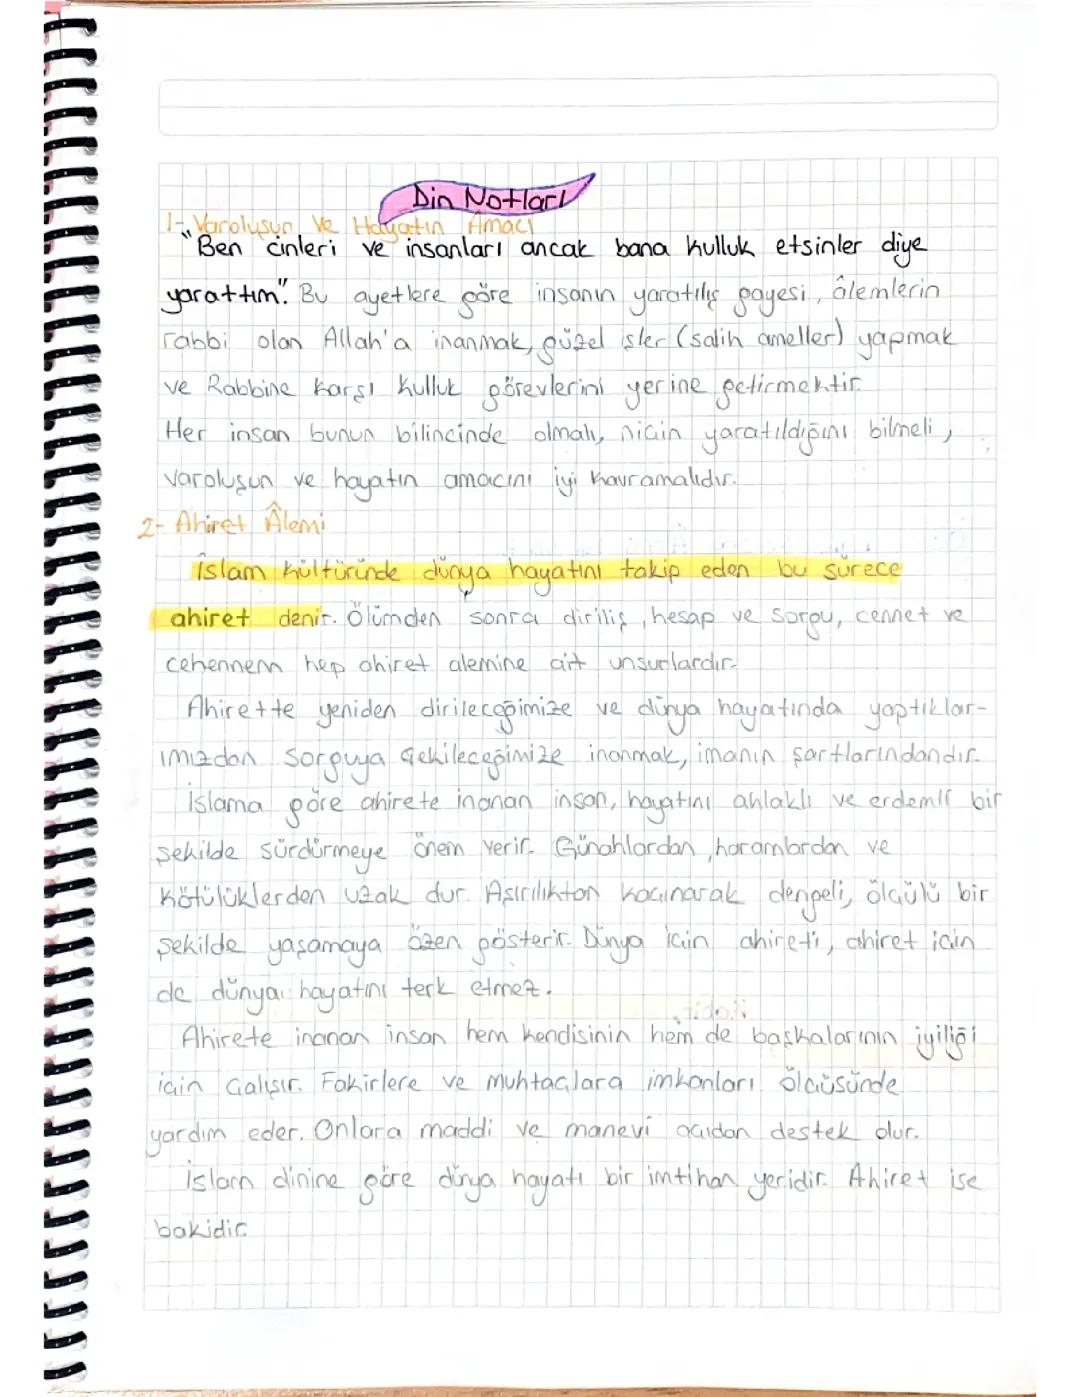 Din Notları
1- Varoluşun Ve Hayatın Amacı
"Ben cinleri ve insanları ancak bana kulluk etsinler diye
yarattım." Bu ayetlere göre insanın yaratılış gayesi, âlemlerin
rabbi olan Allah'a inanmak, güzel işler (salih ameller) yapmak
ve Rabbine karşı kulluk görevlerini yerine getirmektir.
Her insan bunun bilincinde olmalı, niçin yaratıldığını bilmeli,
varoluşun ve hayatın amacını iyi kavramalıdır.
2- Ahiret Âlemi
İslam kültüründe dünya hayatını takip eden bu sürece
ahiret denir. Ölümden sonra diriliş, hesap ve sorgu, cennet ve
cehennem hep ahiret alemine ait unsurlardır.
Ahirette yeniden dirileceğimize ve dünya hayatında yaptıklar-
ımızdan sorguya çekileceğimize inanmak, imanın şartlarındandır.
İslama göre ahirete inanan insan, hayatını ahlaklı ve erdemli bir
şekilde sürdürmeye önem verir. Günahlardan, haramlardan ve
kötülüklerden uzak dur. Aşırılıktan kaçınarak dengeli, ölçülü bir
şekilde yaşamaya özen gösterir. Dünya için ahireti, ahiret için
de dünya hayatını terk etmez.
Ahirete inanan insan hem kendisinin hem de başkalarının iyiliği
için çalışır. Fakirlere ve muhtaçlara imkanları ölçüsünde
yardım eder. Onlara maddi ve manevi açıdan destek olur.
İslam dinine göre dünya hayatı bir imtihan yeridir. Ahiret ise
bakidir.